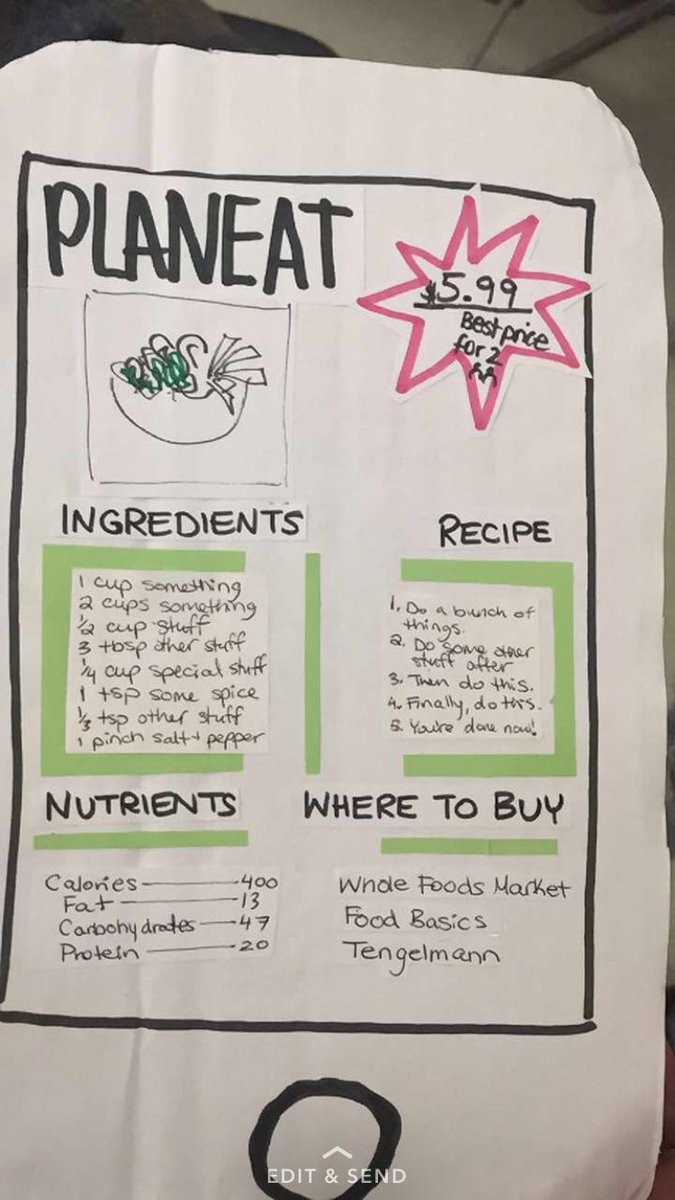 PLANEAT
$5.99
Best price
for 2
INGREDIENTS
1 cup something
2 cups something
1/2 cup stuff
3 tbsp other stuff
1/4 cup special stuff
1 tsp some spice
1/3 tsp other stuff
1 pinch salt + pepper
RECIPE
1. Do a bunch of
things.
2. Do some other
stuff after
3. Then do this.
4. Finally, do this.
5. You're done now!
NUTRIENTS
Calories 400
Fat 13
Carbohydrates 47
Protein 20
WHERE TO BUY
Whole Foods Market
Food Basics
Tengelmann
EDIT & SEND